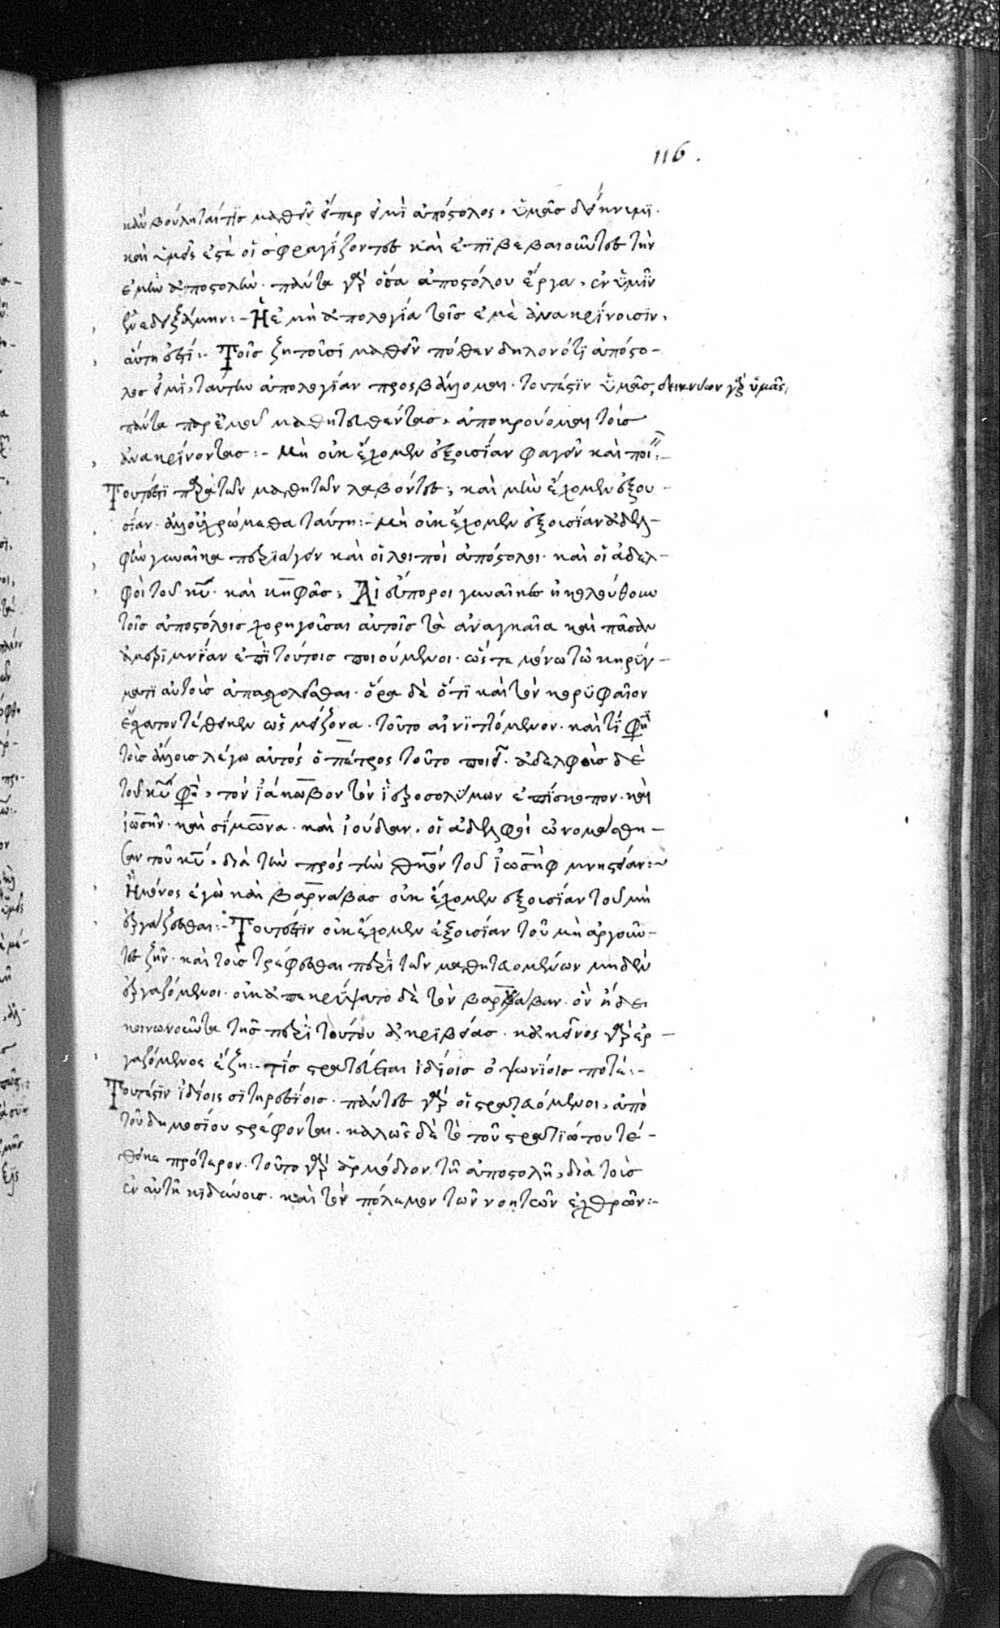 116.
κἂν βούληταί τις μαθεῖν εἴπερ εἰμὶ ἀπόστολος, ὑμᾶς δείκνυμι.
καὶ ὑμεῖς ἐστὲ οἱ σφραγίζοντες καὶ ἐπιβεβαιοῦντες τὴν
ἐμὴν ἀποστολήν. πάντα γὰρ ὅσα ἀποστόλου ἔργα, ἐν ὑμῖν
ἐνεδειξάμην:- Ἡ ἐμὴ ἀπολογία τοῖς ἐμὲ ἀνακρίνουσιν,
αὕτη ἐστί:- Τοῖς ζητοῦσι μαθεῖν πόθεν δῆλον ὅτι ἀπόστο-
λος εἰμὶ, ταύτην ἀπολογίαν προσβάλλομαι. τουτέστιν ὑμᾶς, δεικνύων γὰρ ὑμᾶς,
πάντα παρ' ἐμοῦ μαθητευθέντας, ἀποκρούομαι τοὺς
ἀνακρίνοντας:- Μὴ οὐκ ἔχομεν ἐξουσίαν φαγεῖν καὶ πιεῖν:-
Τουτέστι παρὰ τῶν μαθητῶν λαβόντες; καὶ μὴν ἔχομεν ἐξου-
σίαν. ἀλλ' οὐ χρώμεθα ταύτῃ:- Μὴ οὐκ ἔχομεν ἐξουσίαν ἀδελ-
φὴν γυναῖκα περιάγειν καὶ οἱ λοιποὶ ἀπόστολοι. καὶ οἱ ἀδελ-
φοὶ τοῦ κυ. καὶ κηφᾶς; Αἱ εὔποροι γυναῖκες ἠκολούθουν
τοῖς ἀποστόλοις χορηγοῦσαι αὐτοῖς τὰ ἀναγκαῖα καὶ πᾶσαν
μέριμναν ἐπὶ τούτοις ποιούμεναι. ὥστε μόνω τῶ κηρύγ-
ματι αὐτοὺς ἀπασχολεῖσθαι. ὅρα δὲ ὅτι καὶ τὸν κορυφαῖον
ἔσχατον τέθεικεν ὡς μείζονα. τοῦτο αἰνιττόμενον. καὶ τί φη
τοὺς ἄλλους λέγω αὐτὸς ὁ πέτρος τοῦτο ποιεῖ. ἀδελφοὺς δὲ
τοῦ κυ φη, τὸν ἰάκωβον τὸν ἱεροσολύμων ἐπίσκοπον. καὶ
ἰωσὴν. καὶ σίμωνα. καὶ ἰούδαν. οἱ ἀδελφοὶ ὠνομάσθη-
σαν τοῦ κυ, διὰ τὴν πρὸς τὴν θκον τοῦ ἰωσὴφ μνηστείαν:-
Ἢ μόνος ἐγὼ καὶ βαρνάβας οὐκ ἔχομεν ἐξουσίαν τοῦ μὴ
ἐργάζεσθαι:- Τουτέστιν οὐκ ἔχομεν ἐξουσίαν τοῦ μὴ ἀργοῦν-
τες ζῆν. καὶ τοὺς τρέφεσθαι παρὰ τῶν μαθητευομένων μηδὲν
ἐργαζόμενοι. οὐκ ἀπεκρύψατο δὲ τὸν βαρνάβαν. ὃν ᾔδει
κοινωνοῦντα τῆς περὶ τούτου ἀκριβείας. κἀκεῖνος γὰρ ἐρ-
γαζόμενος ἔζη:- Τίς στρατεύεται ἰδίοις ὀψωνίοις ποτέ:-
Τουτέστιν ἰδίοις σιτηρεσίοις. πάντες γὰρ οἱ στρατευόμενοι, ἀπὸ
τοῦ δημοσίου τρέφονται. καλῶς δὲ τὸ τοῦ στρατιώτου τέ-
θεικε πρότερον. τοῦτο γὰρ ἁρμόδιον τῇ ἀποστολῇ, διὰ τοὺς
ἐν αὐτῇ κινδύνους. καὶ τὸν πόλεμον τῶν νοητῶν ἐχθρῶν:-